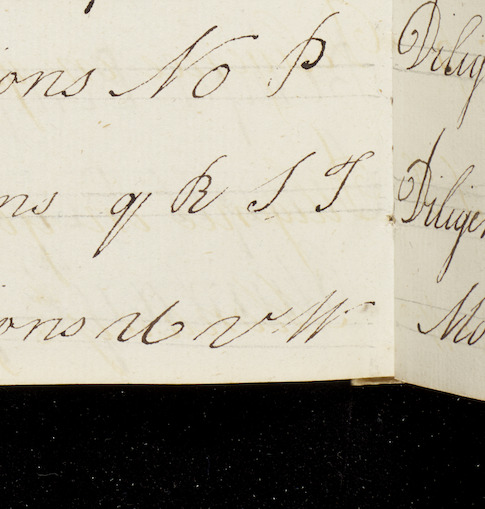 ons N O P
ns q R S T
ons U V W
Dilig
Diligen
Mo